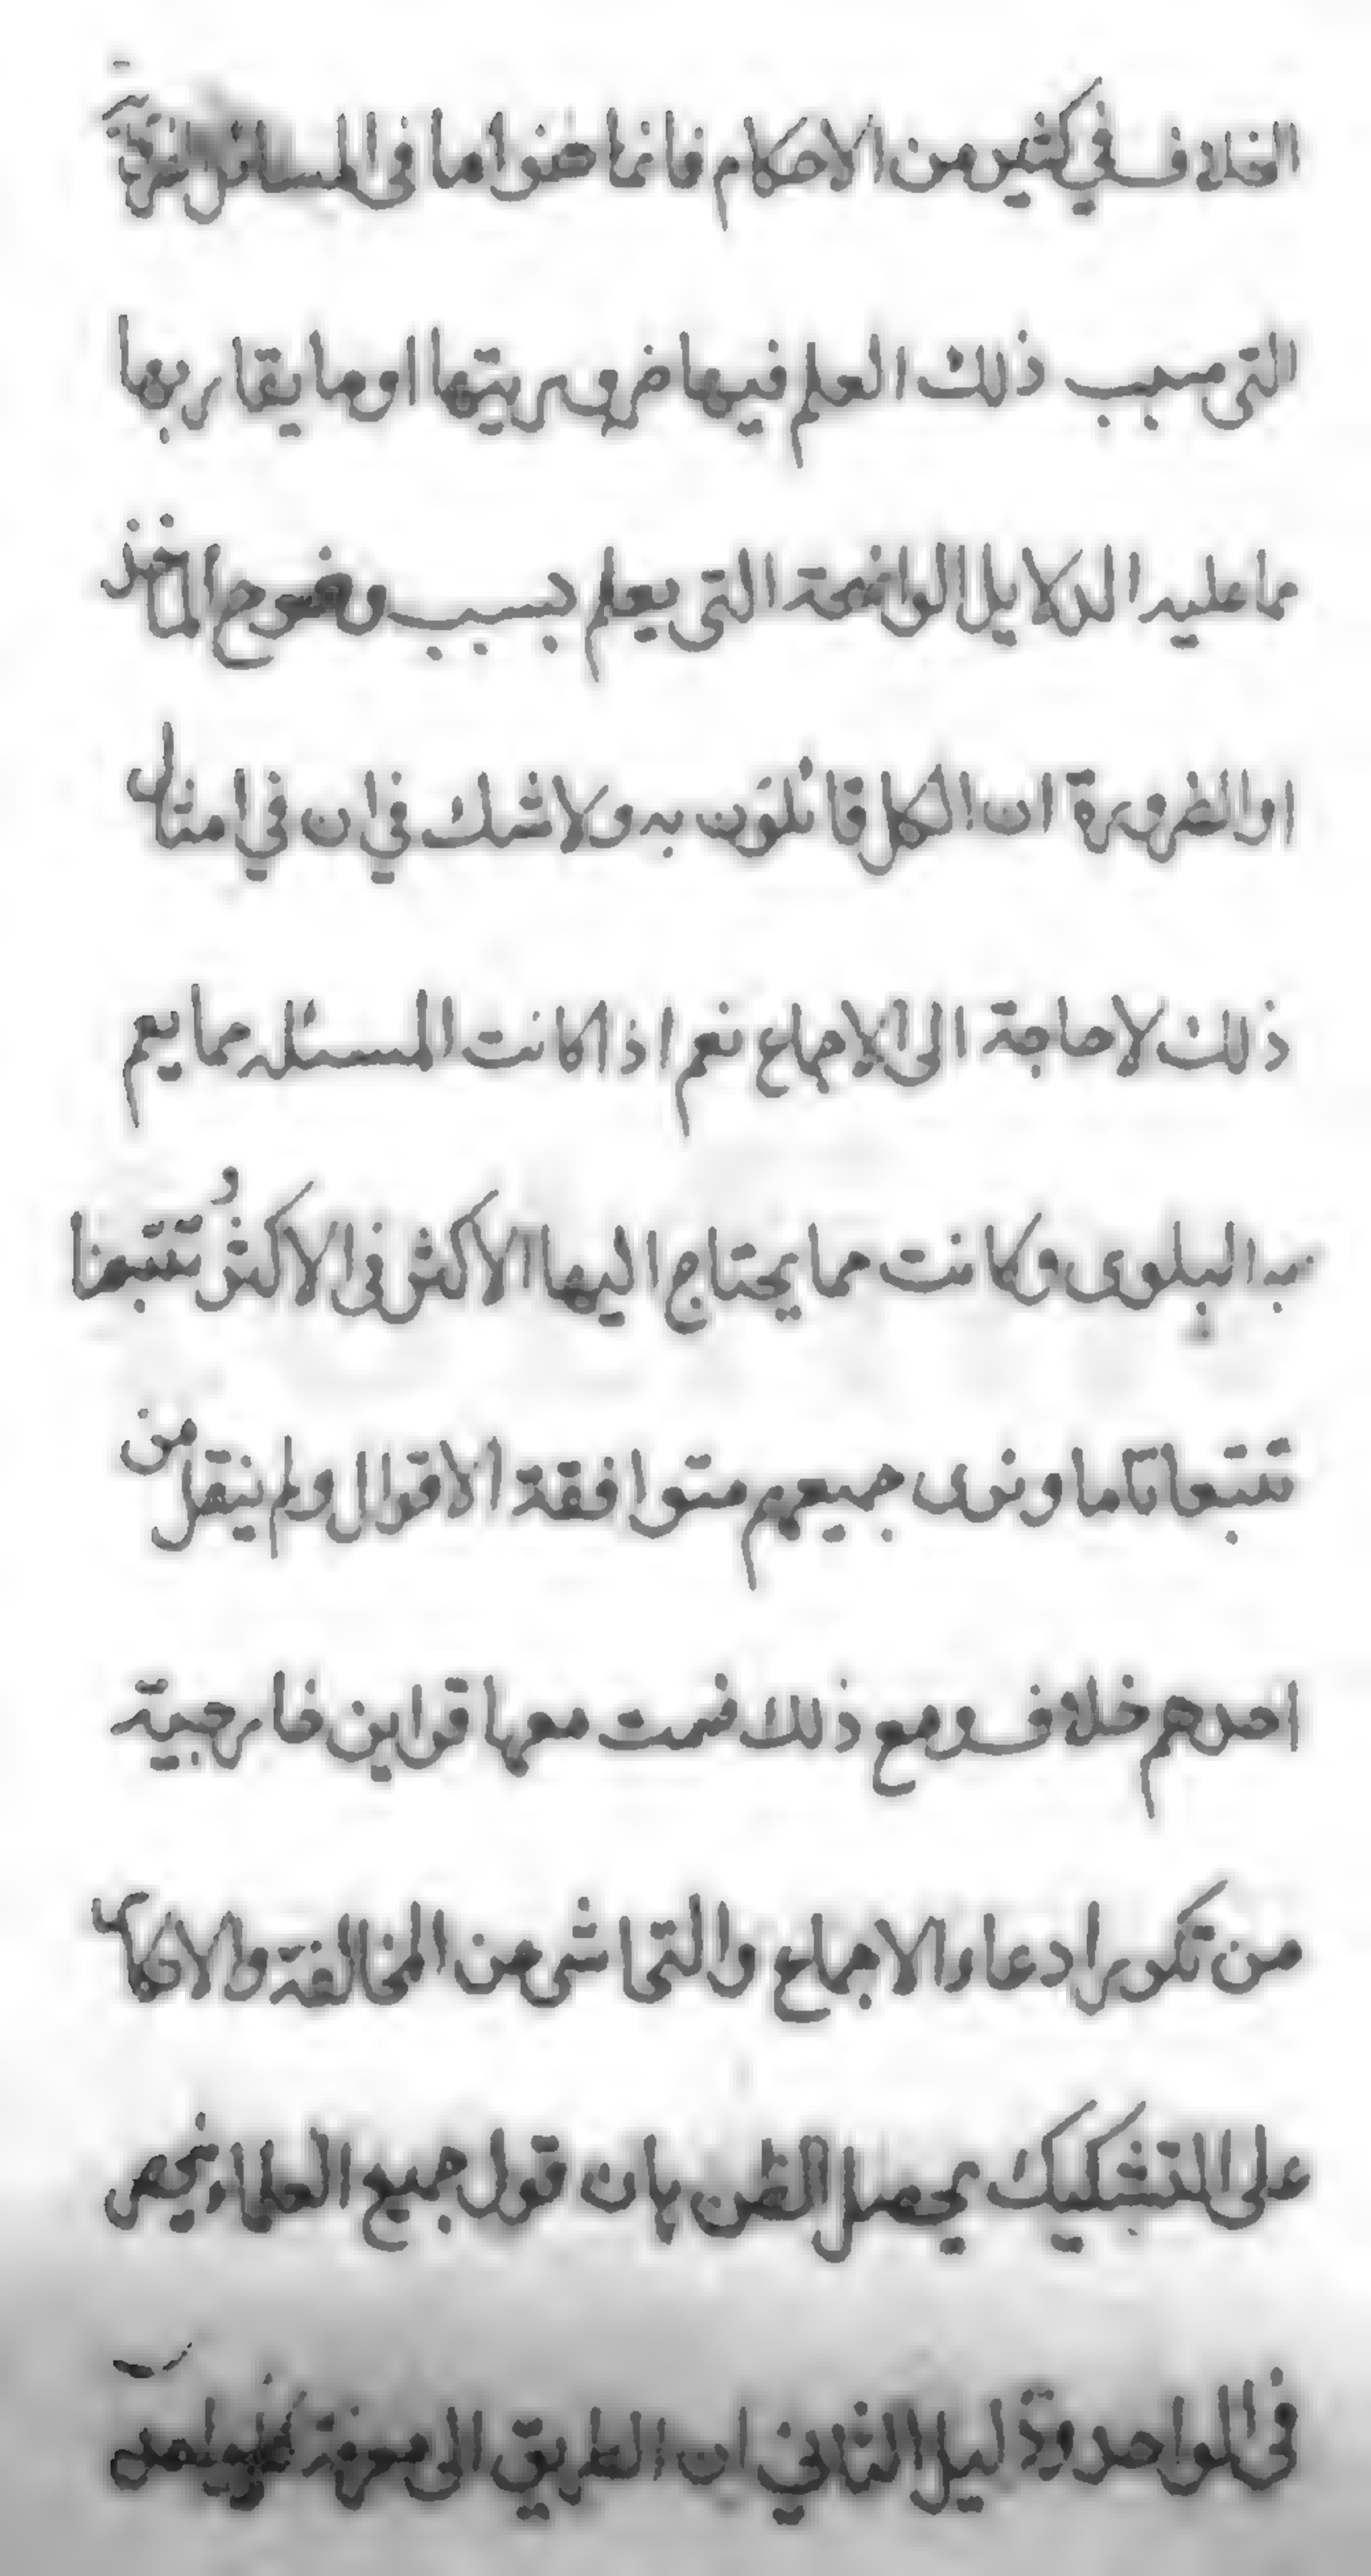 الخلاف في كثير من الاحكام فانما هنوا اما في المسائل
التي سبب ذلك العلم فيها ضروريتها او ما يقاربها
مما عليه الدلايل الواضحة التي يعلم بسبب وضوح الماخذ
او الضرورة ان الكل قائلون به ولا شك في ان في امثال
ذلك لا حاجة الى الاجماع نعم اذا كانت المسئله مما يعم
به البلوى وكانت مما يحتاج اليها الاكثر في الاكثر وتتبعنا
تتبعا تاما ونرى جميعهم متوافقة الاقوال ولم ينقل من
احدهم خلاف ومع ذلك ضمت معها قراين خارجية
من تكرير ادعاء الاجماع والتحاشي من المخالفة والانكار
على التشكيك يحصل الظن بان قول جميع العلماء
في الواحد ودليل الثاني ان الطريق الى معرفة